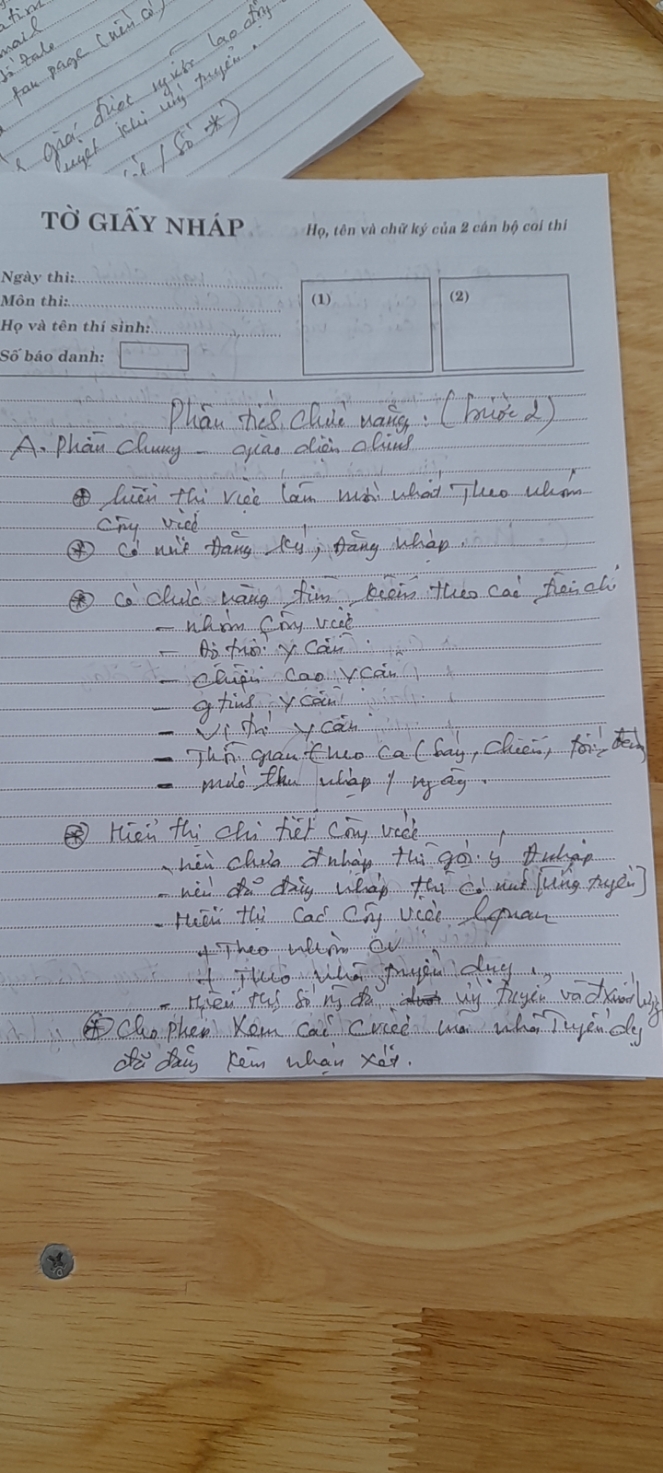 mail
fan page (nếu có)
TỜ GIẤY NHÁP
Họ, tên và chữ ký của 2 cán bộ coi thi
Ngày thi:
Môn thi:
Họ và tên thí sinh:
Số báo danh:
(1)
(2)
Phân tích chức năng. (bước 2)
A. Phần chung - giao diện chính
* hiển thị việc làm mới nhất theo nhóm
công việc
* có nút đăng ký, đăng nhập.
* có chức năng tìm kiếm theo các tiêu chí
- nhóm công việc
- Độ tuổi y cầu
- chiều cao y cầu
- g tính y cầu
- Vị trí y cầu
- Thời gian theo ca (sáng, chiều, tối, đêm
- mức thu nhập / ngày.
* Hiển thị chi tiết công việc
- nếu chưa đ nhập thì gợi ý đ nhập
- nếu đã đăng nhập thì có nút [ứng tuyển]
- Hiển thị các công việc l quan
+ Theo nhóm cv
+ Theo nhà tuyển dụng
- Hiển thị số ng đã ứng tuyển và
* Cho phép xem các cviệc mà nhà tuyển dg
đã đăng kèm nhận xét.